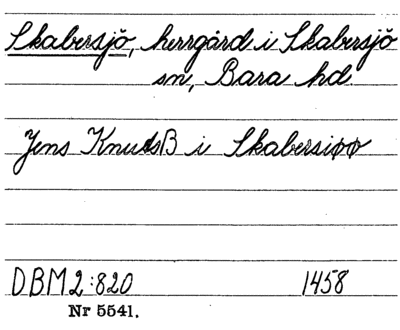 Skabersjö, herrgård i Skabersjö
sn, Bara hd.
Jens KnudsB i Skabersiøø
DBM2:820 1458
Nr 5541.